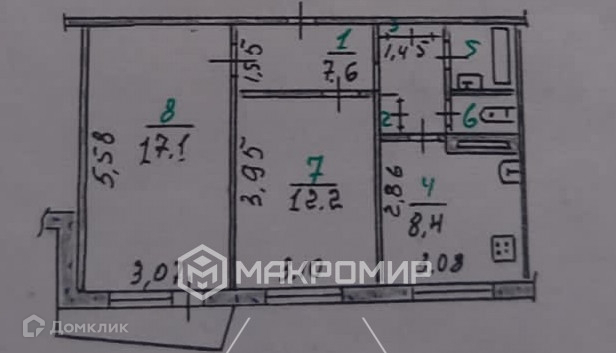 8
17.1
5,58
3,07
1
7,6
1,55
3
1,45
5
2
6
7
12.2
3,95
4
8,4
2,86
3,08
МАКРОМИР
Домклик